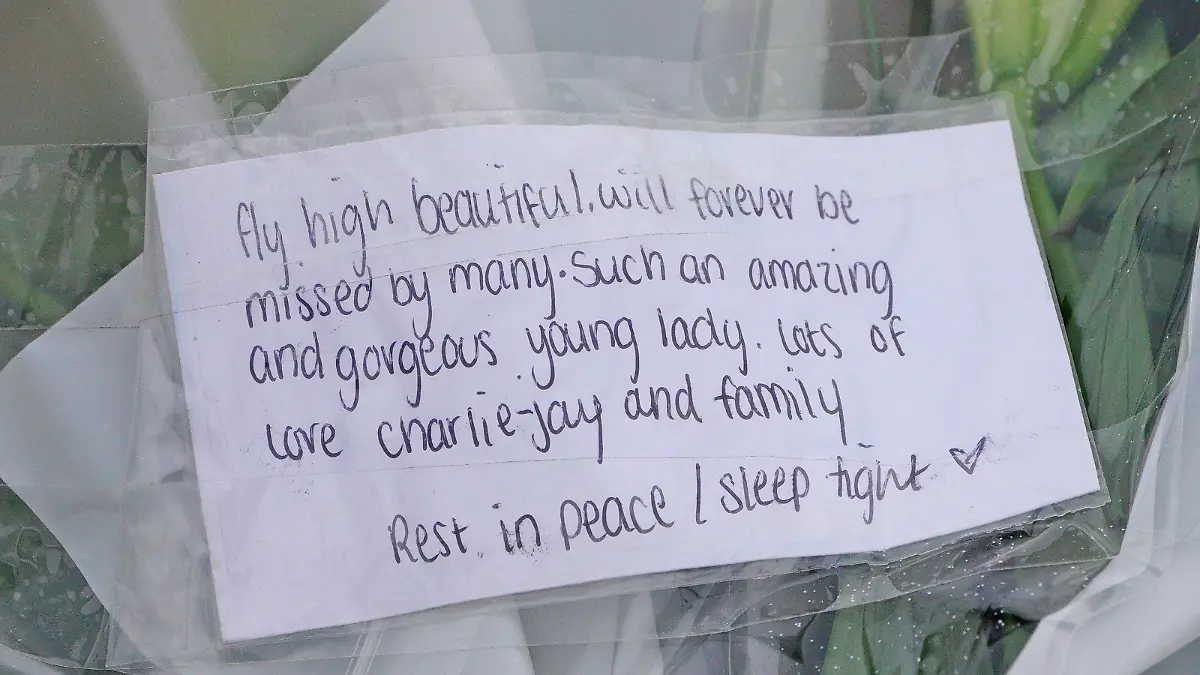 fly high beautiful. will forever be
missed by many. Such an amazing
and gorgeous young lady. Lots of
love charlie-jay and family
Rest in peace / sleep tight ♡